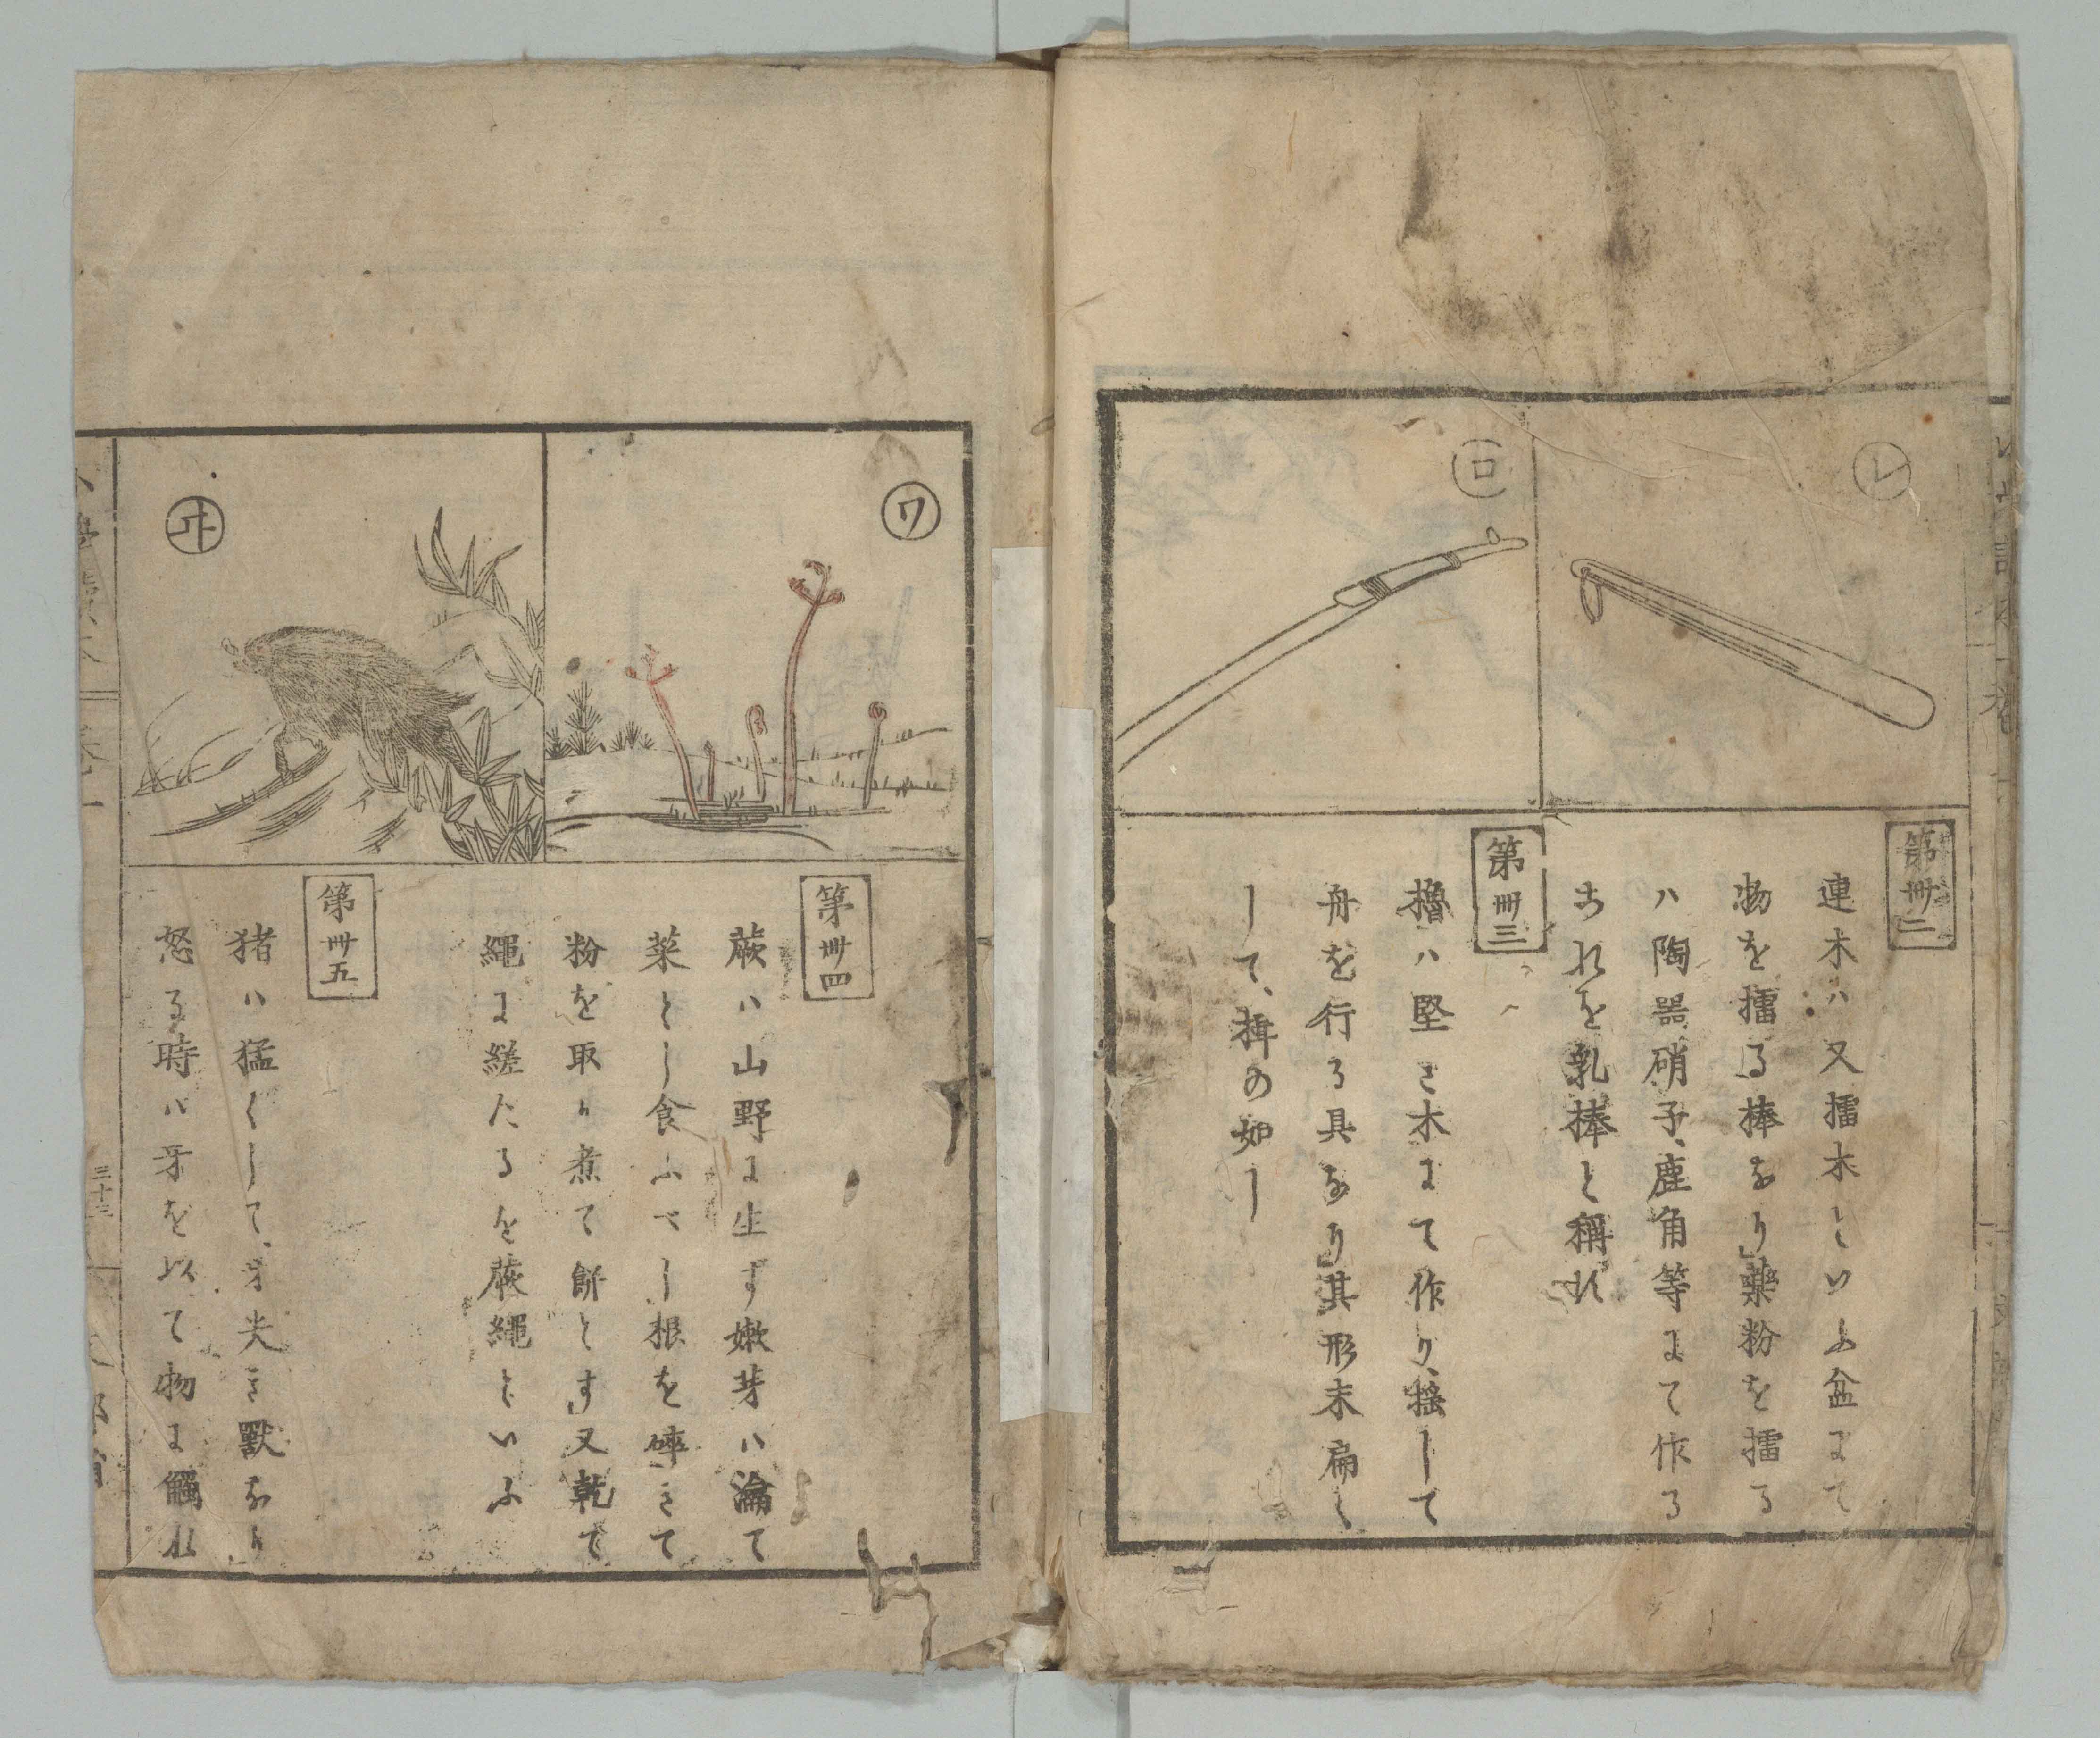 レ
第卅二
連木ハ又擂木といふ盆にて
物を擂る棒なり」薬粉を擂る
ハ陶噐、硝子、鹿角等にて作る
これを乳棒と稱す
ロ
第卅三
櫓ハ堅き木にて作り、揺して
舟を行る具なり」其形末扁く
して、楫の如し
ワ
第卅四
蕨ハ山野に生ず嫩芽ハ瀹て
菜とし食ふべし根を碎きて
粉を取り煮て餅とす」又乾て
繩に縒たるを蕨繩といふ
ヰ
第卅五
猪ハ猛くして、牙尖き獸なり」
怒る時ハ牙を以て物に觸れ
三十三